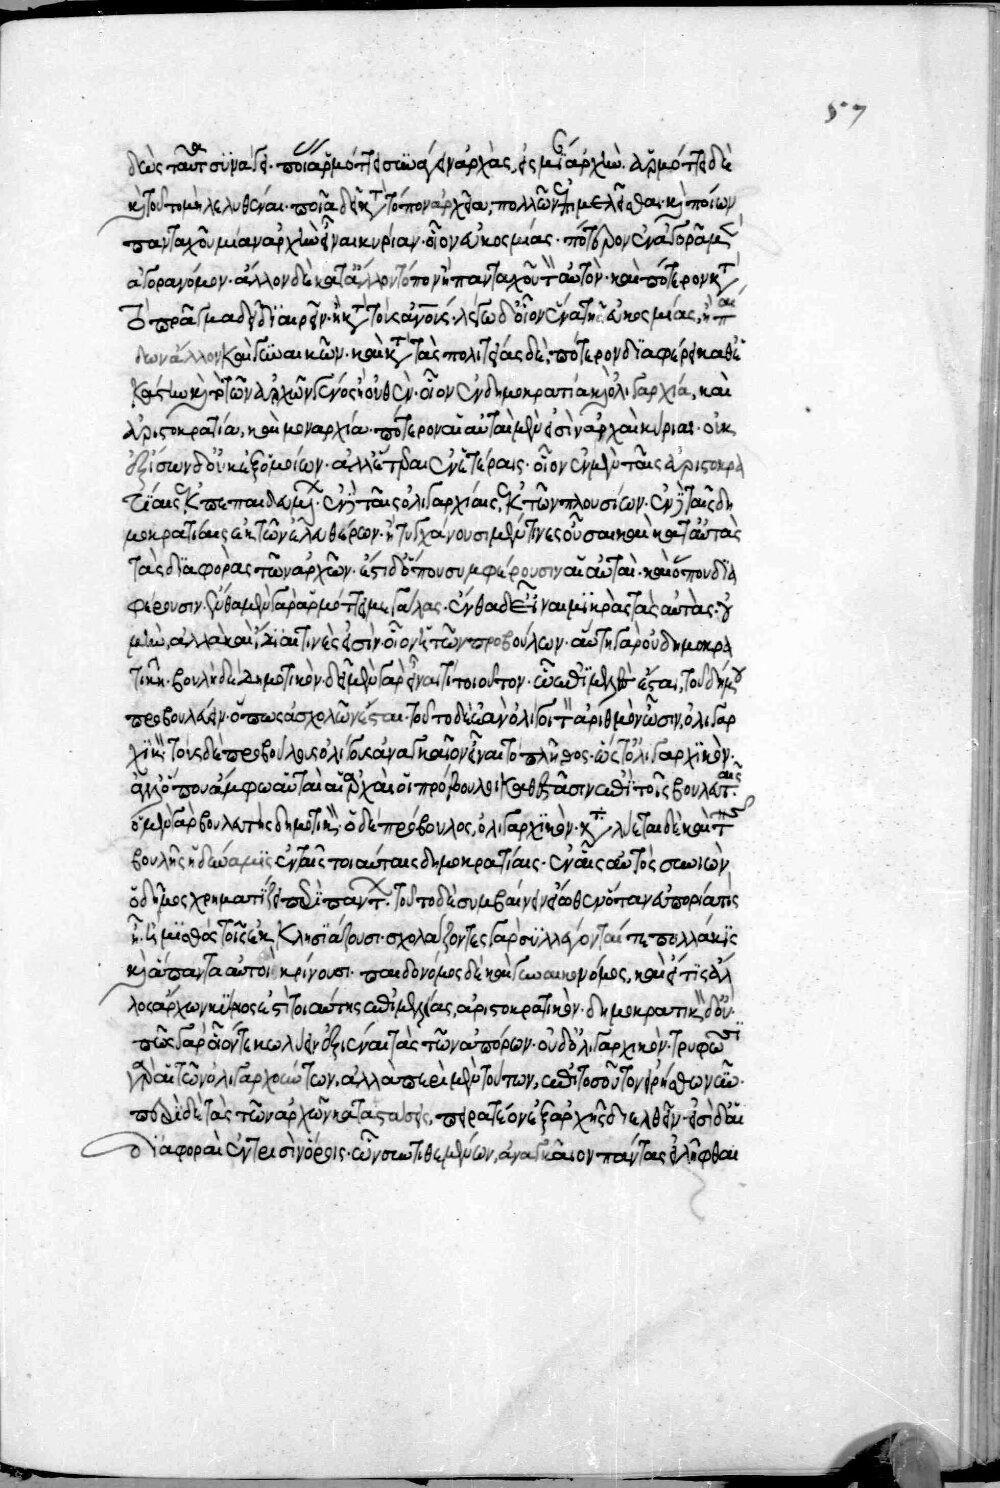 δεὼς ταῦτ συνάγειν. ποίας ἁρμόττει συνάγειν ἀρχὰς, εἰς μίαν ἀρχήν. ἁρμόττει δὲ
καὶ τοῦτο μὴ λεληθέναι. ποῖα δεῖ κατὰ τόπον ἀρχεῖα, πολλῶν ἐπιμελεῖσθαι. καὶ ποίων
πανταχοῦ μίαν ἀρχὴν εἶναι κυρίαν. οἷον εὐκοσμίας. πότερον ἐν ἀγορᾶ μὲν
ἀγορανόμον. ἄλλον δὲ κατ' ἄλλον τόπον. ἢ πανταχοῦ τὸν αὐτόν. καὶ πότερον κατὰ
τὸ πρᾶγμα δεῖ διαιρεῖν. ἢ κατὰ τοὺς ἀνθρώπους. λέγω δ' οἷον ἕνα τῆς εὐκοσμίας, ἢ παί
δων ἄλλον καὶ γυναικῶν. καὶ κατὰ τὰς πολιτείας δὲ, πότερον διαφέρει καθ' ἑ
κάστην καὶ τὸ τῶν ἀρχῶν γένος ἢ οὐθέν. οἷον ἐν δημοκρατία καὶ ὀλιγαρχία, καὶ
ἀριστοκρατία, καὶ μοναρχία. πότερον αἱ αὐταὶ μέν εἰσιν ἀρχαὶ κύριαι. οὐκ
ἐξ ἴσων δ' οὐκ ἐξ ὁμοίων. ἀλλ' ἕτεραι ἐν ἑτέραις. οἷον ἐν μὲν ταῖς ἀριστοκρα
τίαις ἐκ πεπαιδευμένων. ἐν δὲ ταῖς ὀλιγαρχίαις, ἐκ τῶν πλουσίων. ἐν δὲ ταῖς δη
μοκρατίαις ἐκ τῶν ἐλευθέρων. ἢ τυγχάνουσι μέν τινες οὖσαι καὶ κατ' αὐτὰς
τὰς διαφορὰς τῶν ἀρχῶν. ἔστι δ' ὅπου συμφέρουσιν αἱ αὐταὶ. καὶ ὅπου δια
φέρουσιν. ἔνθα μὲν γὰρ ἁρμόττει μεγάλας. ἔνθα δ' εἶναι μικρὰς τὰς αὐτὰς. οὐ
μὴν, ἀλλὰ καὶ ἴδιαί τινες εἰσίν. οἷον ἡ τῶν προβούλων. αὕτη γὰρ οὐ δημοκρα
τική. βουλὴ δὲ δημοτικόν. δεῖ μὲν γὰρ εἶναί τι τοιοῦτον. ᾧ ἐπιμελὲς ἔσται, τοῦ δήμου
προβουλεύειν. ὅπως ἀσχολῶν ἔσται. τοῦτο δὲ ἐὰν ὀλίγοι τὸν ἀριθμὸν ὦσιν, ὀλιγαρ
χικόν. τοὺς δὲ προβούλους ὀλίγους ἀναγκαῖον εἶναι τὸ πλῆθος. ὥστ' ὀλιγαρχικόν.
ἀλλ' ὅπου ἄμφω αὗται αἱ ἀρχαὶ οἱ πρόβουλοι καθεστᾶσιν ἐπὶ τοῖς βουλευταῖς.
ὁ μὲν γὰρ βουλευτὴς δημοτικόν. ὁ δὲ πρόβουλος, ὀλιγαρχικόν. καταλύεται δὲ καὶ τῆς
βουλῆς ἡ δύναμις ἐν ταῖς τοιαύταις δημοκρατίαις. ἐν αἷς αὐτὸς συνιὼν
ὁ δῆμος χρηματίζει περὶ πάντων. τοῦτο δὲ συμβαίνειν εἴωθεν ὅταν εὐπορία τις
ἢ ἢ μισθὸς τοῖς ἐκκλησιάζουσι. σχολάζοντες γὰρ συλλέγονταί τε πολλάκις
καὶ ἅπαντα αὐτοὶ κρίνουσι. παιδονόμος δὲ καὶ γυναικονόμος, καὶ εἴ τις ἄλ
λος ἄρχων κύριός ἐστι τοιαύτης ἐπιμελείας, ἀριστοκρατικόν. δημοκρατικὸν δ' οὔ.
πῶς γὰρ οἷόν τε κωλύειν ἐξιέναι τὰς τῶν ἀπόρων. οὐδ' ὀλιγαρχικόν. τρυφῶσι
γὰρ αἱ τῶν ὀλιγαρχούντων, ἀλλὰ περὶ μὲν τούτων, ἐπὶ τοσοῦτον εἰρήσθω νῦν.
περὶ δὲ τὰς τῶν ἀρχῶν καταστάσεις, πειρατέον ἐξ ἀρχῆς διελθεῖν. εἰσὶ δ' αἱ
διαφοραὶ ἐν τρισὶν ὅροις. ὧν συντιθεμένων, ἀναγκαῖον πάντας εἰλῆφθαι